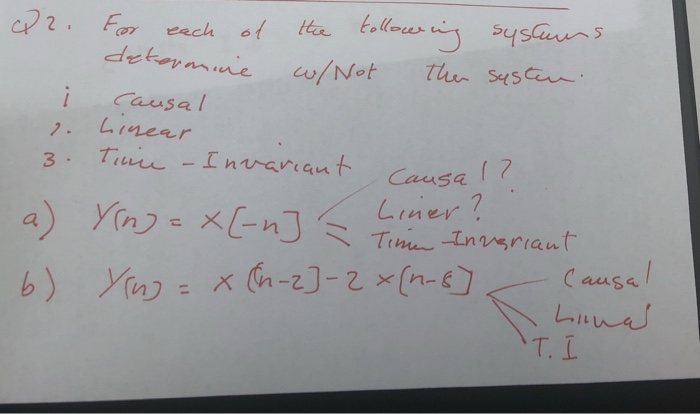 Q2. For each of the following systems
determine w/Not the system.
i Causal
2. Linear
3. Time - Invariant
a) Y(n) = X[-n]
Causal?
Liner?
Time Invariant
b) Y(n) = x[n-2]-2x[n-8]
Causal
Linear
T. I